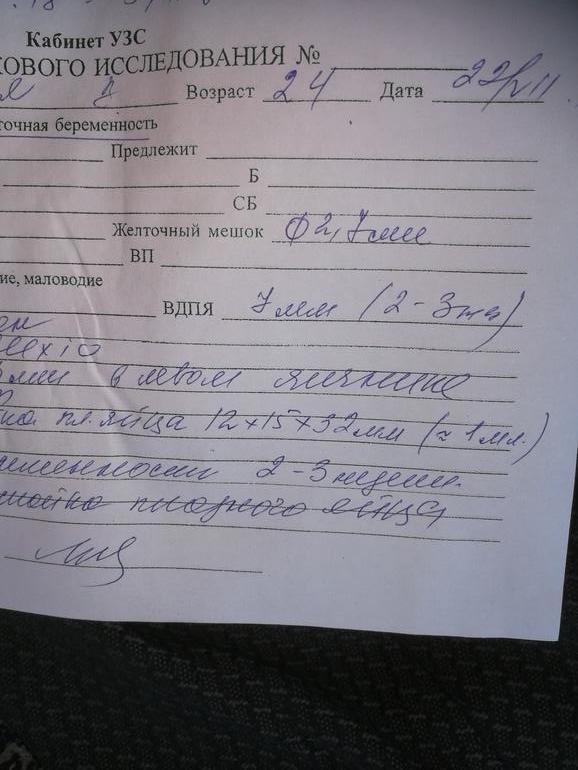 Кабинет УЗС
КОВОГО ИССЛЕДОВАНИЯ №
Возраст 24 Дата
точная беременность
Предлежит
Б
СБ
Желточный мешок ф 2,7 мм
ВП
ие, маловодие
ВДПЯ 7 мм (2-3 нед)
flexio
мм в левом яичнике
пл. яйца 12х15х32 мм (≈ 1 мл.)
2-3 недели.
плодного яйца